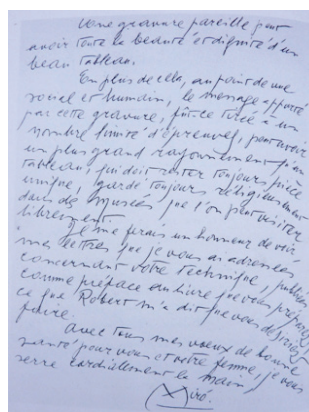 Une gravure pareille peut
avoir toute la beauté et dignité d'un
beau tableau.
En plus de cela, au point de vue
social et humain, le message apporté
par cette gravure, fût-ce tiré à un
nombre limité d'épreuves, peut avoir
un plus grand rayonnement qu'un
tableau, qui doit rester toujours pièce
unique, gardé toujours religieusement
dans des musées que l'on peut visiter
librement.
Je me ferais un honneur de voir
mes lettres que je vous ai adressées
concernant votre technique, publiées
comme préface au livre que vous préparez
ce que Robert m'a dit que vous désiriez
faire.
Avec tous mes voeux de bonne
santé pour vous et votre femme, je vous
serre cordiellement la main,
Miró.